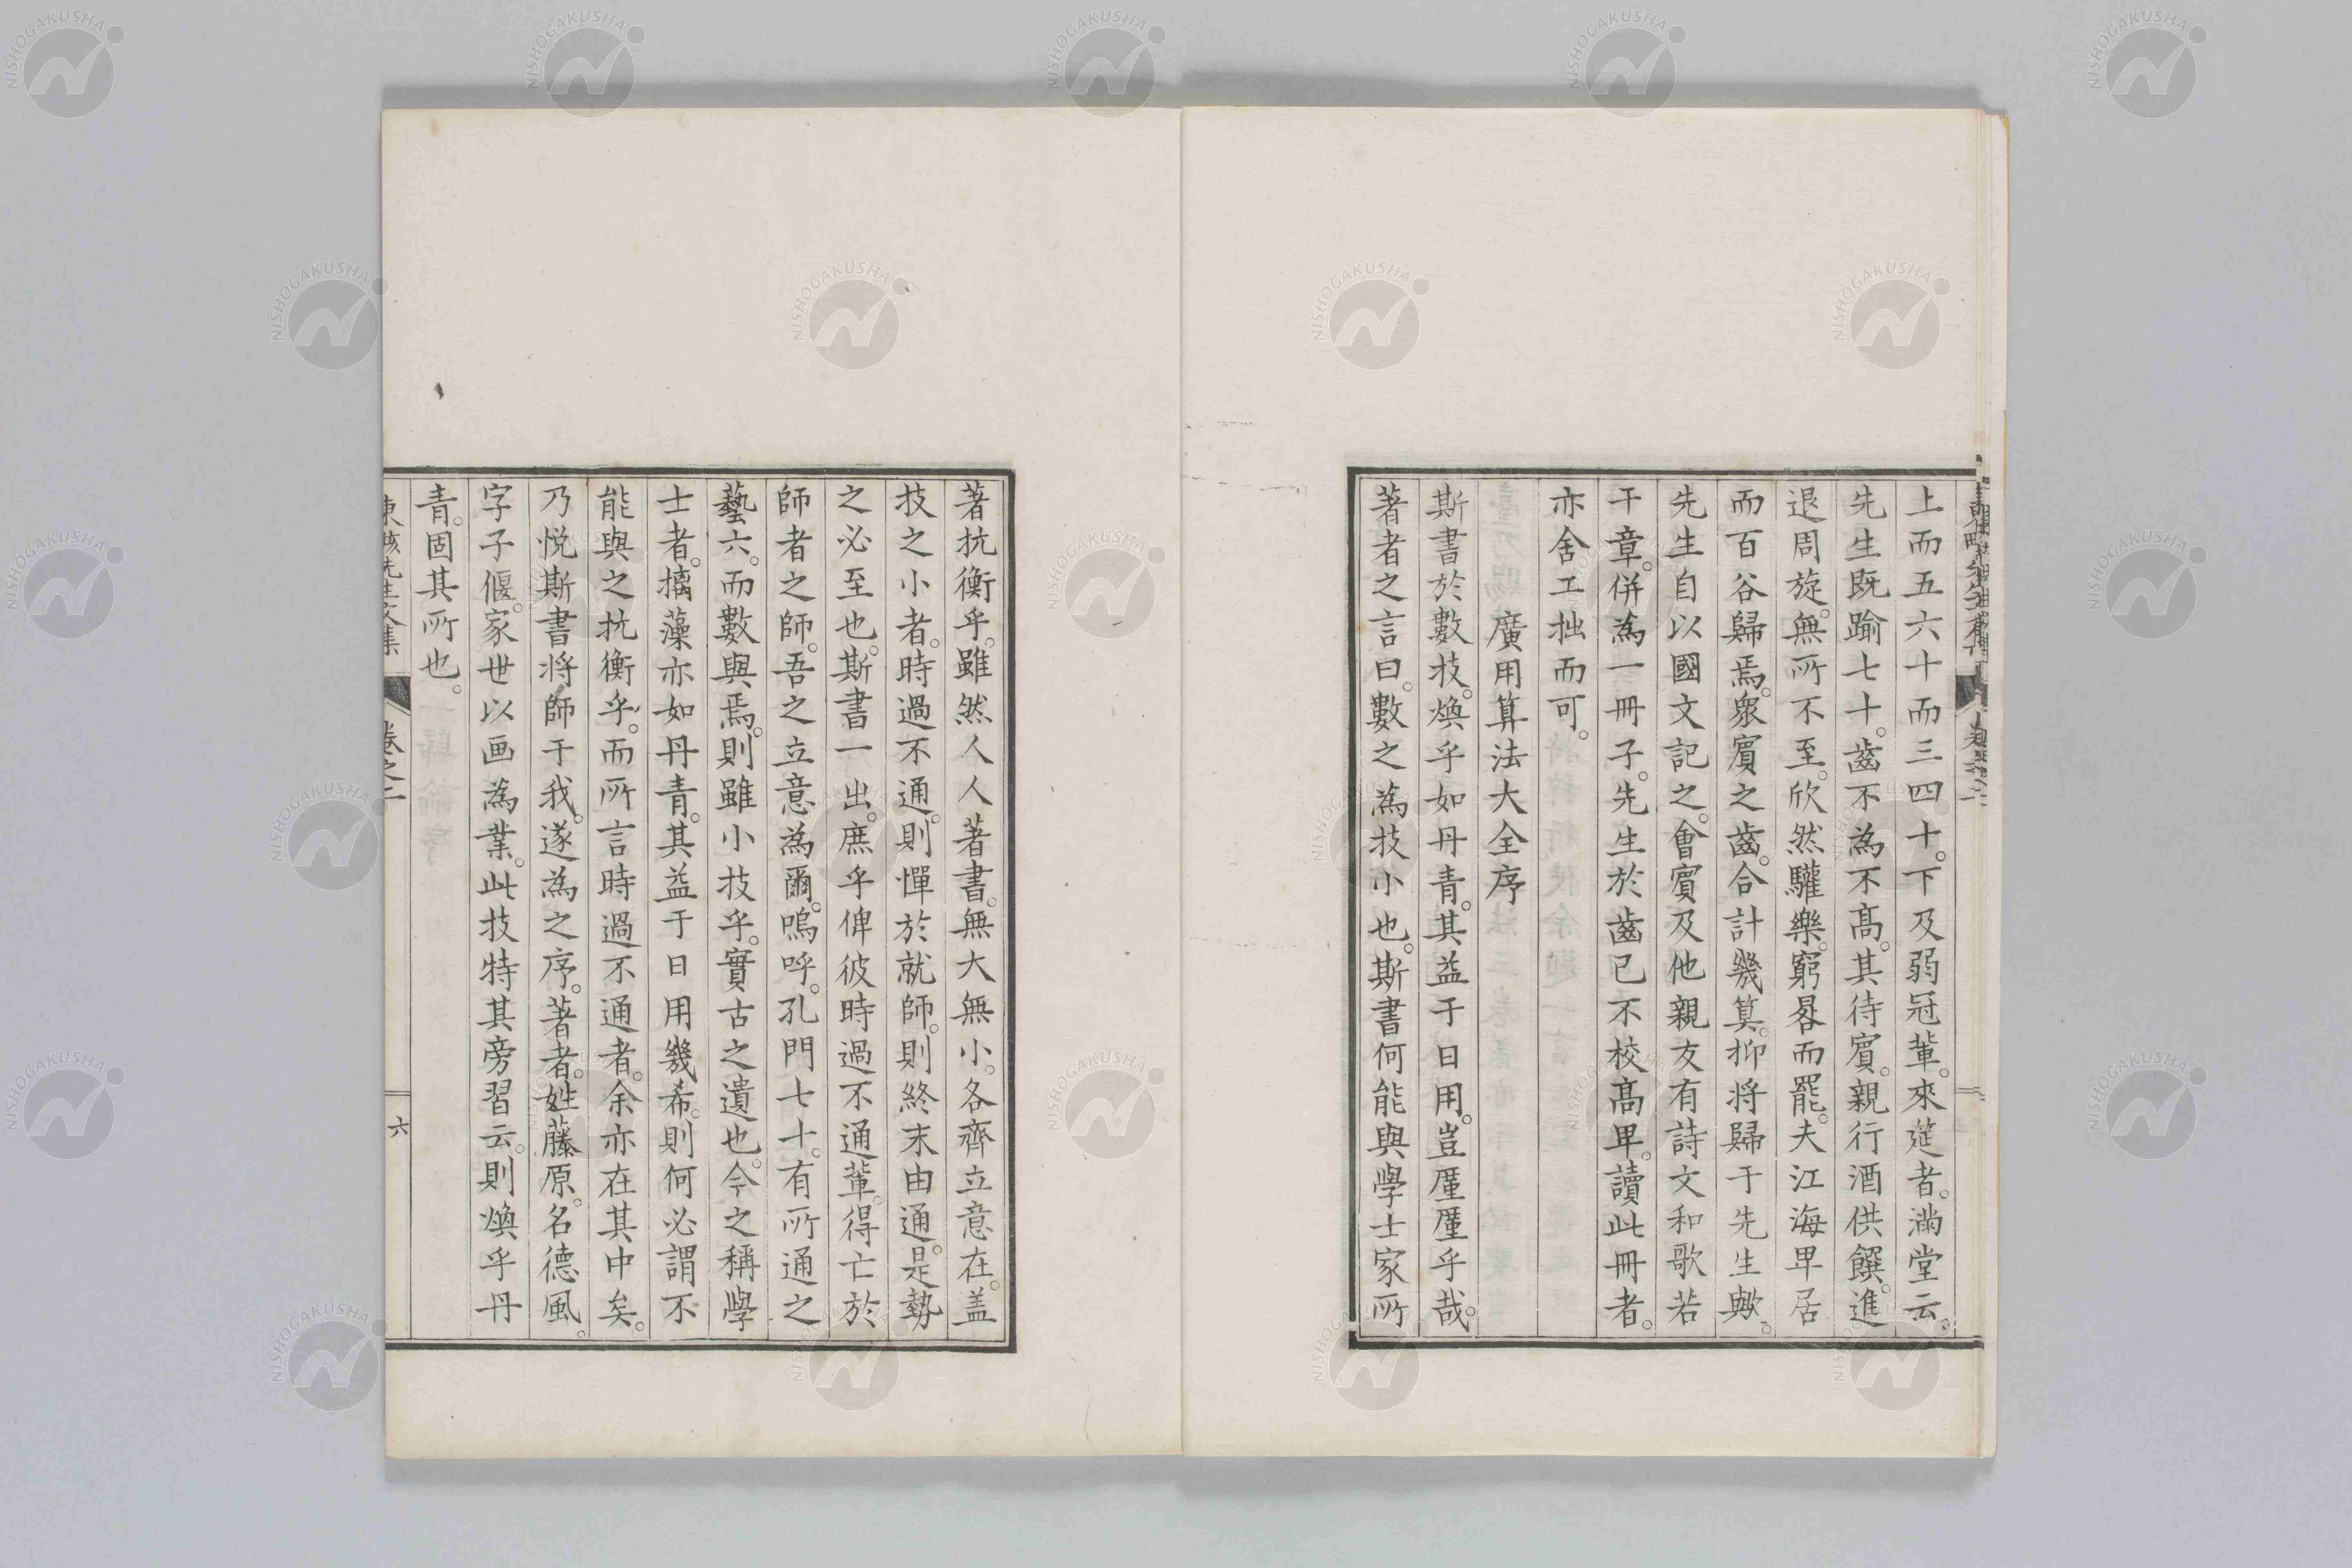 上而五六十而三四十。下及弱冠輩。來莚者。滿堂云。
先生既踰七十。齒不為不髙。其待賔。親行酒供饌。進
退周旋。無所不至。欣然驩樂。窮晷而罷。夫江海卑居
而百谷歸焉。衆賔之齒。合計幾算。抑将歸于先生歟。
先生自以國文記之。會賔及他親友有詩文和歌若
干章。併為一冊子。先生於齒已不校髙卑。讀此冊者。
亦舍工拙而可。
廣用算法大全序
斯書於數技。煥乎如丹青。其益于日用。豈厪厪乎哉。
著者之言曰。數之為技小也。斯書何能與學士家所
著抗衡乎。雖然人人著書。無大無小。各齊立意在。盖
技之小者。時過不通。則憚於就師。則終末由通。是勢
之必至也。斯書一出。庶乎俾彼時過不通輩。得亡於
師者之師。吾之立意為爾。嗚呼。孔門七十。有所通之
藝六。而數與焉。則雖小技乎。實古之遺也。今之稱學
士者。摛藻亦如丹青。其益于日用幾希。則何必謂不
能與之抗衡乎。而所言時過不通者。余亦在其中矣。
乃悦斯書将師于我。遂為之序。著者。姓藤原。名德風。
字子偃。家世以画為業。此技特其旁習云。則煥乎丹
青。固其所也。
東該先生文集 卷之二 六
NISHOGAKUSHA